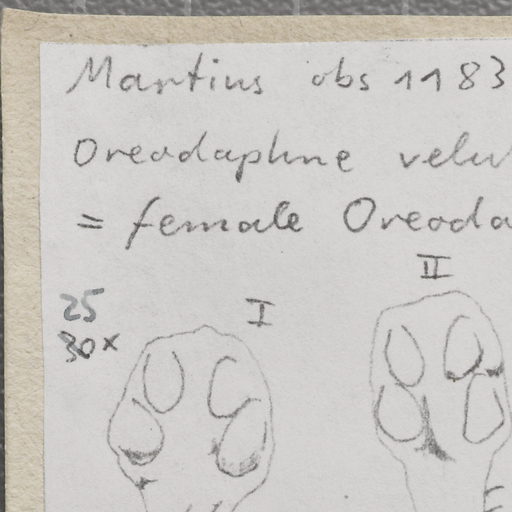 Martius obs 1183
Oreodaphne velu
= female Oreoda
II
25 I
30x